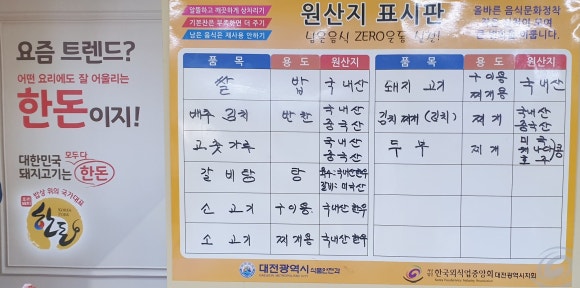 요즘 트렌드?
어떤 요리에도 잘 어울리는
한돈이지!
대한민국 모두다
돼지고기는 한돈
밥상 위의 국가대표
한돈
알뜰하고 깨끗하게 상차리기
기본찬은 부족하면 더 주기
남은 음식은 재사용 안하기
원산지 표시판
남은음식 ZERO운동
올바른 음식문화정착
품 목 용 도 원산지 품 목 용 도 원산지
쌀 밥 국내산 돼지 고기 구이용 찌개용 국내산
배추 김치 반찬 국내산 중국산 김치찌개 (김치) 찌개 국내산 중국산
고춧가루 국내산 중국산 두부 찌개 미국 캐나다 호주 콩
갈비탕 탕 육수:국내산한우 갈비:미국산
소 고기 구이용 국내산한우
소 고기 찌개용 국내산한우
대전광역시 식품안전과
한국외식업중앙회 대전광역시지회